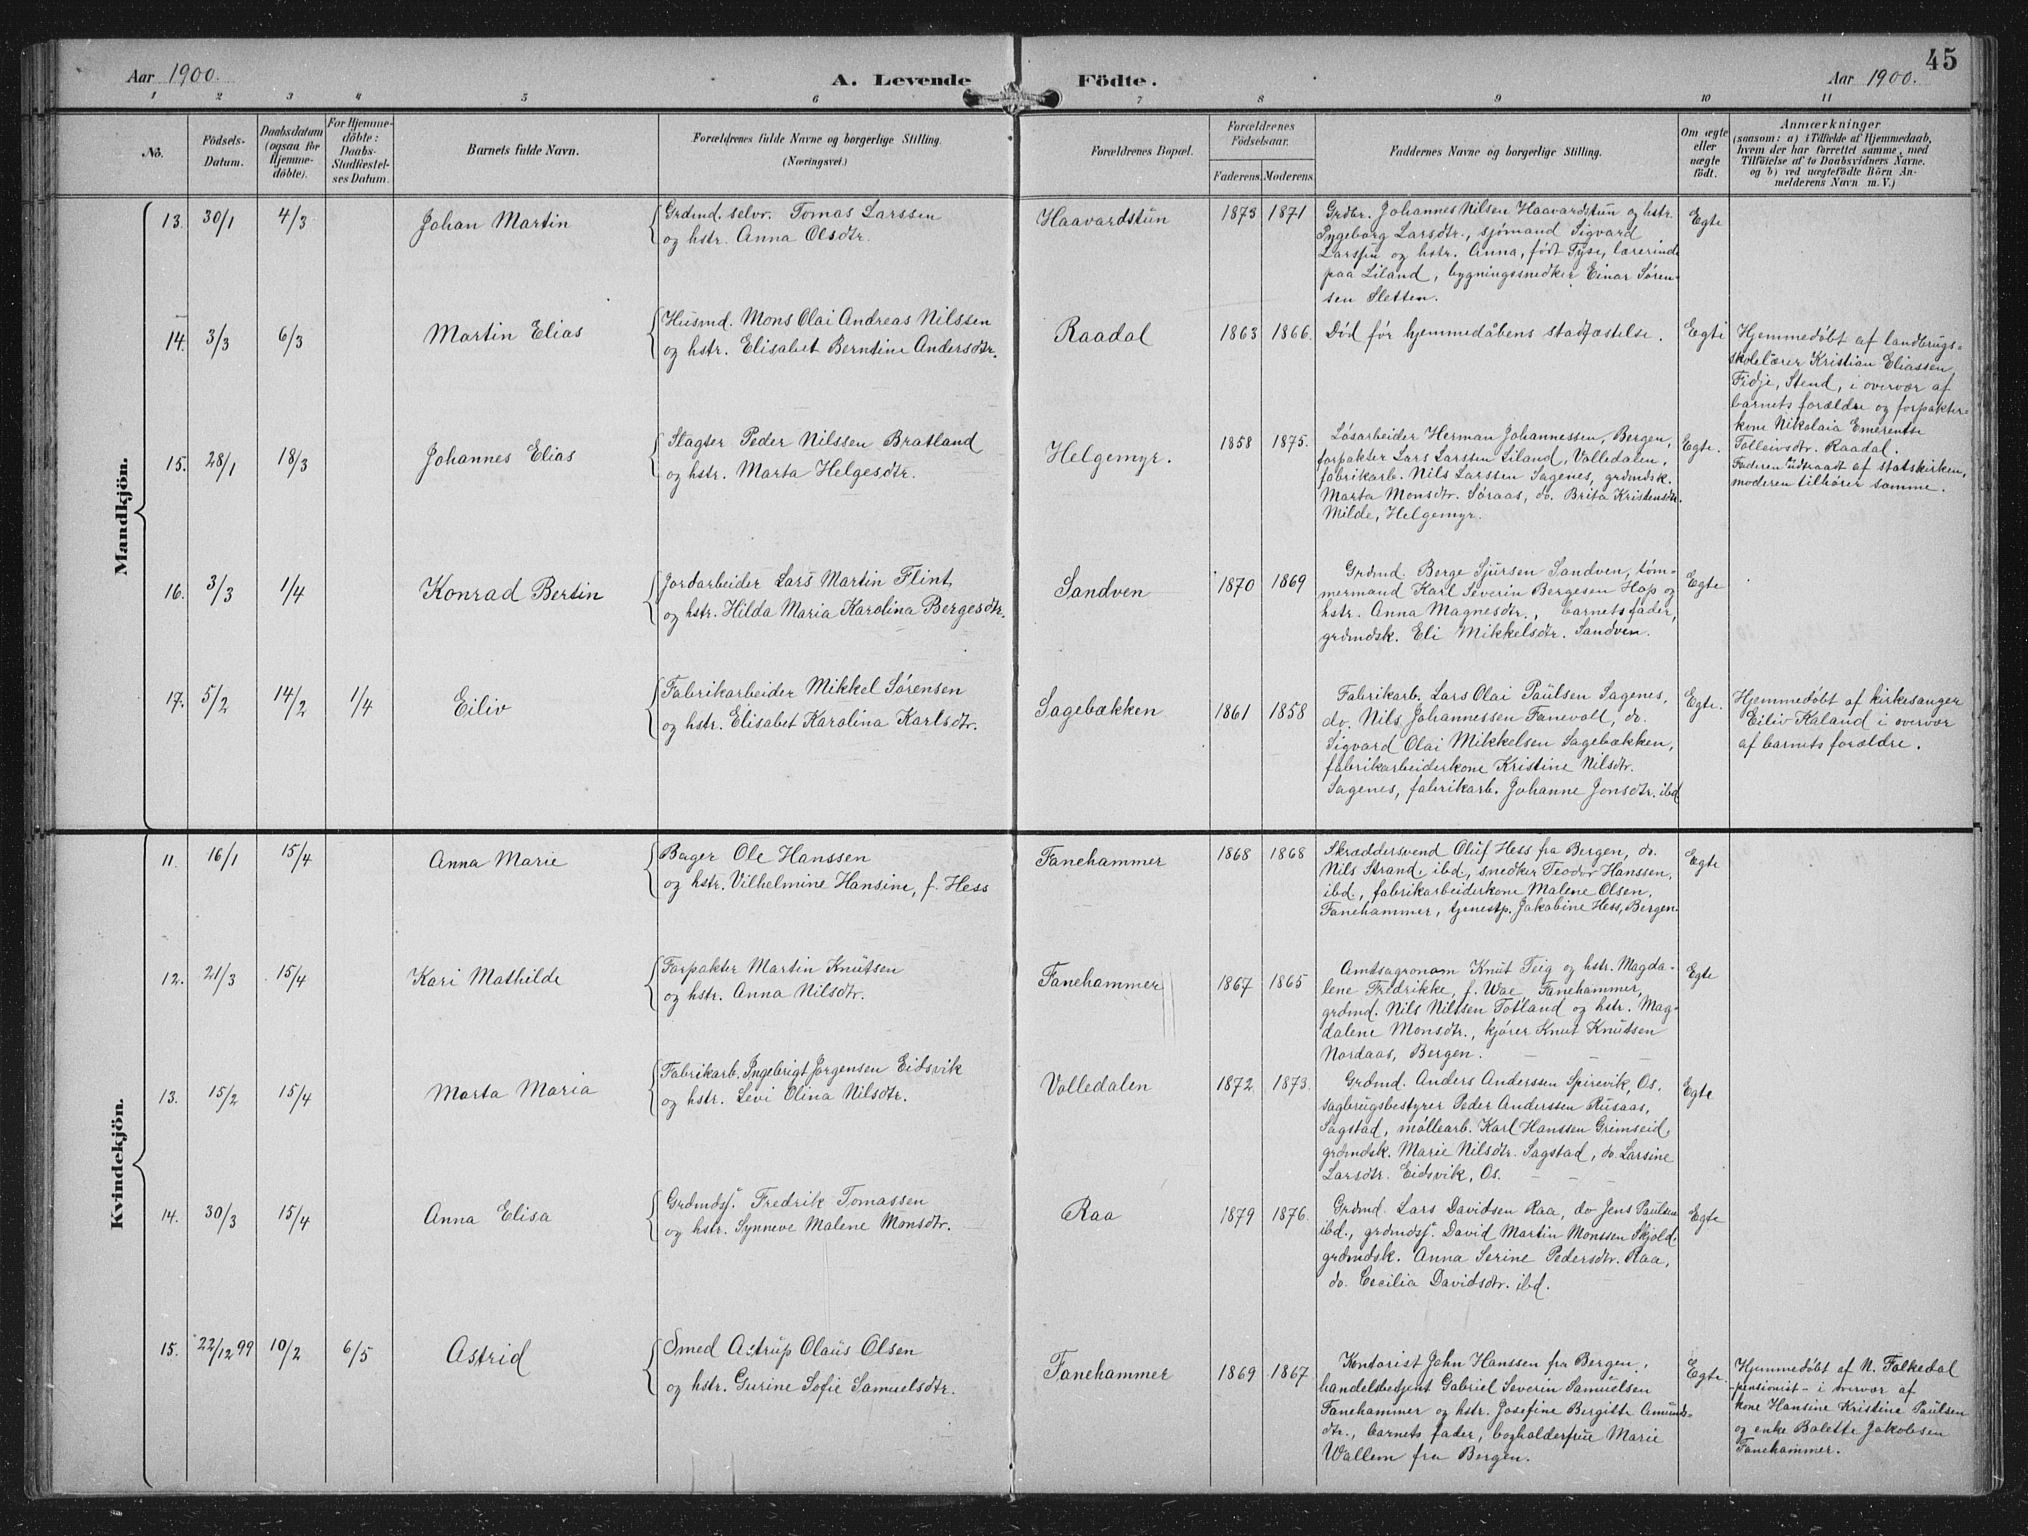 45
Aar 1900.
A. Levende Födte.
Aar 1900.
1 2 3 4 5 6 7 8 9 10 11
No.
Födsels-Datum.
Daabsdatum (ogsaa for Hjemme-döbte).
For Hjemme-döbte: Daabs-Stadfæstel-ses Datum.
Barnets fulde Navn.
Forældrenes fulde Navne og borgerlige Stilling.
(Næringsvei.)
Forældrenes Bopæl.
Forældrenes Födselsaar.
Faderens. Moderens.
Faddernes Navne og borgerlige Stilling.
Om ægte eller uægte födt.
Anmærkninger
(saasom: a) i Tilfælde af Hjemmedaab,
hvem der har forrettet samme, med
Tilföielse af to Daabsvidners Navne.
og b) ved uægtefödte Börn An-
melderens Navn m. V.)
Mandkjön.
13. 30/1 4/3 Johan Martin
Grdmd. selvr. Tomas Larssen
og hstr. Anna Olsdtr.
Haavardstun 1873 1871
Grdbr. Johannes Nilsen Haavardstun og hstr.
Ingeborg Larsdtr., sjömand Sigvard
Larssen og hstr. Anna, født Tyse, lærerinde
paa Liland, bygningssnedker Einar Søren-
sen Sletten.
Egte
14. 3/3 6/3 Martin Elias
Husmd. Mons Olai Andreas Nilssen
og hstr. Elisabet Berntine Andersdtr.
Raadal 1863 1866.
Død før hjemmedåbens stadfæstelse.
Egte
Hjemmedøbt af landbrugs-
skolelærer Kristian Eliassen
Fidje, Stend, i overvær af
barnets forældre og forpakter-
kone Nikolaia Emerentse
Tolleivsdtr. Raadal.
15. 28/1 18/3 Johannes Elias
Slagter Peder Nilssen Bratland
og hstr. Marta Helgesdtr.
Helgemyr. 1858 1875.
Løsarbeider Herman Johannessen, Bergen,
forpakter Lars Larssen Liland, Valledalen,
fabrikarb. Nils Larssen Sagenes, grdmdsk.
Marta Monsdtr. Søraas, do. Brita Kristensdtr.
Milde, Helgemyr.
Egte.
Faderen udtraadt af statskirken,
moderen tilhører samme.
16. 3/3 1/4 Konrad Bertin
Jordarbeider Lars Martin Flint
og hstr. Hilda Maria Karolina Bergesdtr.
Sandven 1870 1869
Grdmd. Berge Sjursen Sandven, töm-
mermand Karl Severin Bergesen Hop og
hstr. Anna Magnesdtr., barnets fader,
grdmdsk. Eli Mikkelsdtr. Sandven.
Egte
17. 5/2 14/2 1/4 Eiliv
Fabrikarbeider Mikkel Sørensen
og hstr. Elisabet Karolina Karlsdtr.
Sagebækken 1861 1858
Fabrikarb. Lars Olai Paulsen Sagenes,
do. Nils Johannessen Fanevolt, do.
Sigvard Olai Mikkelsen Sagebækken,
fabrikarbeiderkone Kristine Nilsdtr.
Sagenes, fabrikarb. Johanne Jonsdtr. ibd
Egte.
Hjemmedøbt af kirkesanger
Eiliv Kaland i overvær
af barnets forældre.
Kvindekjön.
11. 16/1 15/4 Anna Marie
Bager Ole Hanssen
og hstr. Vilhelmine Hansine, f. Hess
Fanehammer 1868 1868
Skræddersvend Oluf Hess fra Bergen, do.
Nils Strand, ibd, snedker Teodor Hanssen,
ibd, fabrikarbeiderkone Malene Olsen,
Fanehammer, tjenestp. Jakobine Hess, Bergen.
Egte
12. 21/3 15/4 Kari Mathilde
Forpakter Martin Knutsen
og hstr. Anna Nilsdtr.
Fanehammer 1867 1865
Amtsagronom Knut Teig og hstr. Magda-
lene Fredrikke, f. Wae Fanehammer,
grdmd. Nils Nilssen Totland og hstr. Mag-
dalene Monsdtr., kjører Knut Knutssen
Nordaas, Bergen.
Egte
13. 15/2 15/4 Marta Maria
Fabrikarb. Ingebrigt Jørgensen Eidsvik
og hstr. Levi Olina Nilsdtr.
Valledalen 1872 1873.
Grdmd. Anders Anderssen Spirevik, Os.
sagbrugsbestyrer Peder Anderssen Rusaas,
Sagstad, møllearb. Karl Hanssen Grimseid,
grdmdsk. Marie Nilsdtr. Sagstad, do. Larsine
Larsdtr. Eidsvik, Os.
Egte
14. 30/3 15/4 Anna Elisa
Grdmdss. Fredrik Tomassen
og hstr. Synneve Malene Monsdtr.
Raa 1879 1876.
Grdmd. Lars Davidsen Raa, do Jens Paulsen
ibd., grdmdss. David Martin Monssen Skjold,
grdmdsk. Anna Serine Pedersdtr. Raa,
do. Cecilia Davidsdtr. ibd.
Egte
15. 22/12 99 10/2 6/5 Astrid
Smed Astrup Olaus Olsen
og hstr. Gurine Sofie Samuelsdtr.
Fanehammer 1869 1867
Kontorist John Hanssen fra Bergen,
handelsbetjent Gabriel Severin Samuelsen
Fanehammer og hstr. Josefine Bergitte Amunds-
dtr., barnets fader, bogholderfrue Marie
Wallem fra Bergen.
Egte.
Hjemmedøbt af N. Falkedal
-pensionist- i overvær af
kone Hansine Kristine Paulsen
og enke Bolette Jakobsen
Fanehammer.